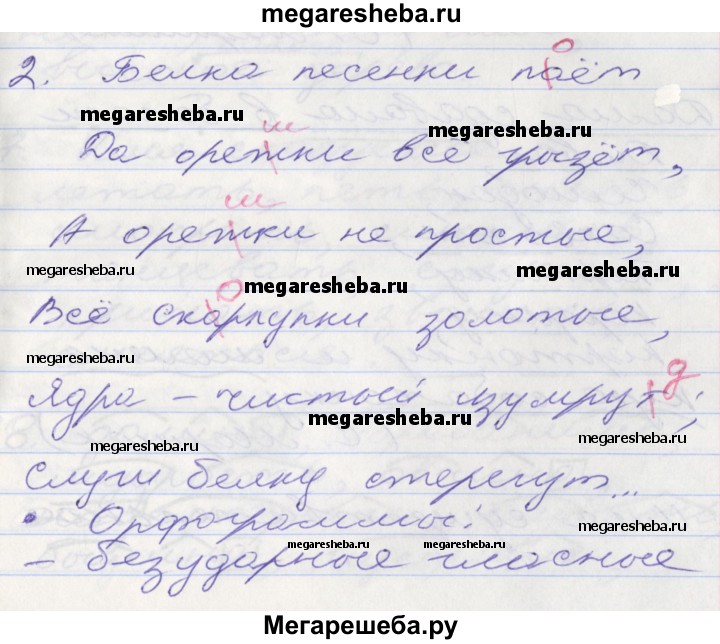 megaresheba.ru
2. Белка песенки паёт
о
megaresheba.ru
megaresheba.ru
ш
Да орежки всё грызёт,
ш
А орежки не простые,
megaresheba.ru
megaresheba.ru
о
megaresheba.ru
Всё скарлупки золотые,
megaresheba.ru
д
Ядра – чистый изумрут;
megaresheba.ru
megaresheba.ru
Слуги белку стерегут...
• Орфограммы:
megaresheba.ru
megaresheba.ru
megaresheba.ru
– безударные гласные
megaresheba.ru
Мегарешеба.ру